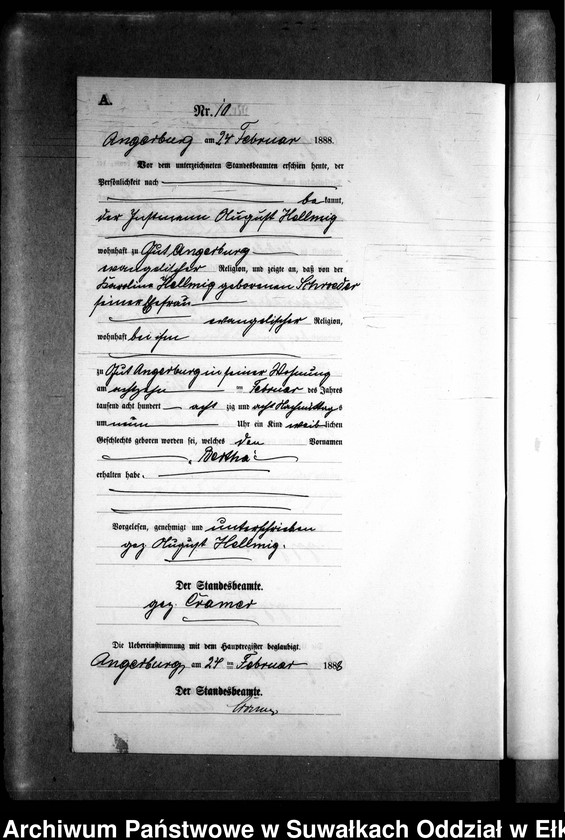 A.
Nr. 10.
Angerburg am 24 Februar 1888.
Vor dem unterzeichneten Standesbeamten erschien heute, der
Persönlichkeit nach
be kannt,
der Instmann August Hellmig
wohnhaft zu Gut Angerburg
evangelischer Religion, und zeigte an, daß von der
Karoline Hellmig geborenen Schroeder
seiner Ehefrau
evangelischer Religion,
wohnhaft bei ihm
zu Gut Angerburg in seiner Wohnung
am achtzehn ten Februar des Jahres
tausend acht hundert acht zig und acht Nachmittag s
um neun Uhr ein Kind weib lichen
Geschlechts geboren worden sei, welches den Vornamen
„Bertha“
erhalten habe.
Vorgelesen, genehmigt und unterschrieben
gez August Hellmig.
Der Standesbeamte.
gez. Cramer
Die Uebereinstimmung mit dem Hauptregister beglaubigt.
Angerburg, am 24 ten Februar 1888
Der Standesbeamte.
Cramer
Archiwum Państwowe w Suwałkach Oddział w Ełk